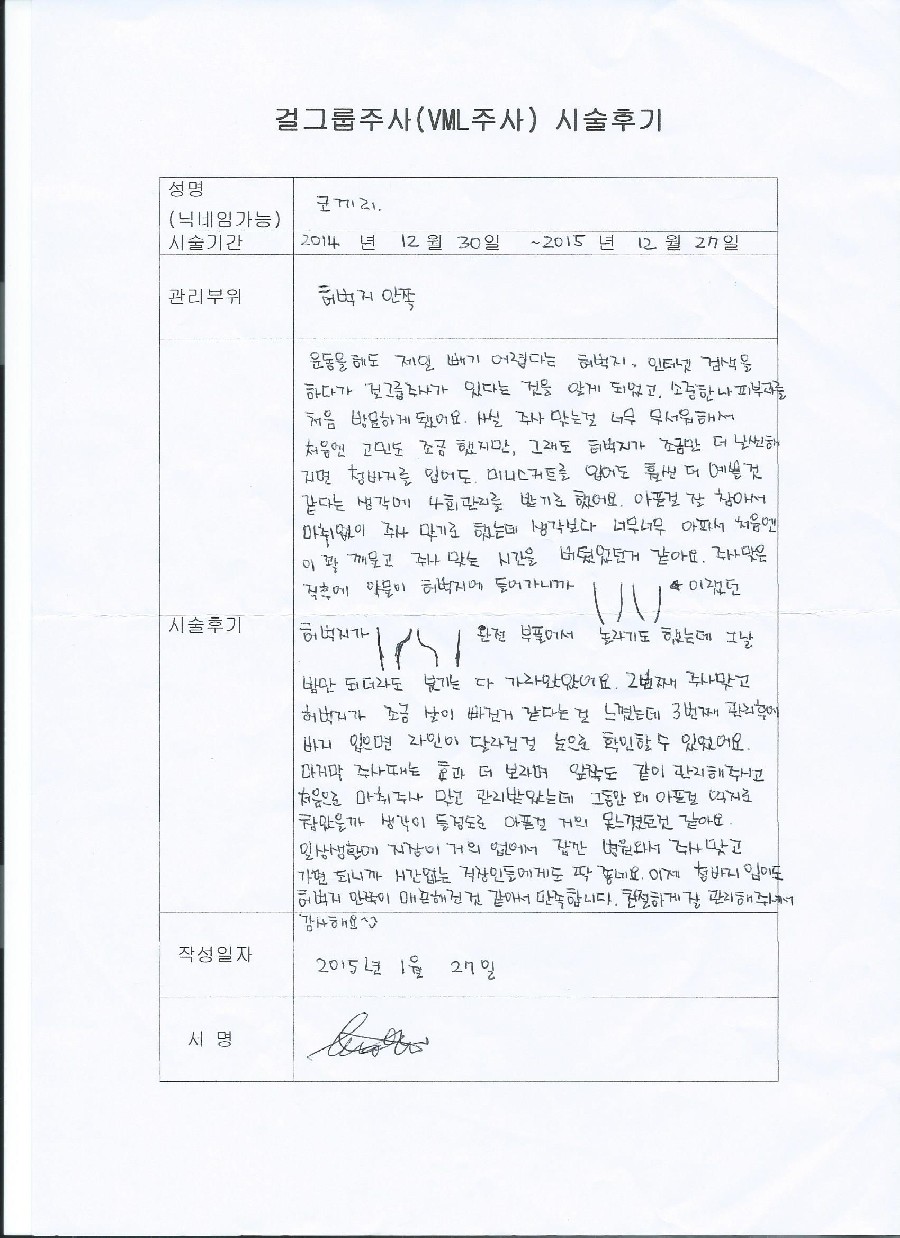 걸그룹주사(VML주사) 시술후기
성명
(닉네임가능)
코끼리.
시술기간
2014 년 12월 30일 ~2015 년 12월 27일
관리부위
허벅지 안쪽
시술후기
운동을해도 제일 빼기 어렵다는 허벅지, 인터넷 검색을
하다가 걸그룹주사가 있다는 것을 알게 되었고, 소중한나피부과를
처음 방문하게됐어요. 사실 주사 맞는걸 너무 무서워해서
처음엔 고민도 조금 했지만, 그래도 허벅지가 조금만 더 날씬해
지면 청바지를 입어도 미니스커트를 입어도 훨씬 더 예쁠것
같다는 생각에 4회관리를 받기로했어요. 아픈걸 잘 참아서
마취없이 주사 맞기로 했는데 생각보다 너무너무 아파서 처음엔
이 꽉 깨물고 주사 맞는 시간을 버텼었던거 같아요. 주사맞은
직후에 약물이 허벅지에 들어가니까 이랬던
허벅지가 완전 부풀어서 놀라기도 했는데 그날
밤만 되더라도 붓기는 다 가라앉았어요. 2번째 주사맞고
허벅지가 조금 살이 빠진거 같다는걸 느꼈는데 3번째 관리후에
바지 입으면 라인이 달라진걸 눈으로 확인할수 있었어요.
마지막 주사때는 효과 더 보라며 앞쪽도 같이 관리해주시고
처음으로 마취주사 맞고 관리받았는데 그동안 왜 아픈걸 억지로
참았을까 생각이 들정도로 아픈걸 거의 못느꼈던것 같아요.
일상생활에 지장이 거의 없어서 잠깐 병원와서 주사맞고
가면 되니까 시간없는 직장인들에게도 딱 좋네요. 이제 청바지 입어도
허벅지 안쪽이 매끈해진것 같아서 만족합니다. 친절하게 잘 관리해주셔서
감사해요~
작성일자
2015년 1월 27일
서 명